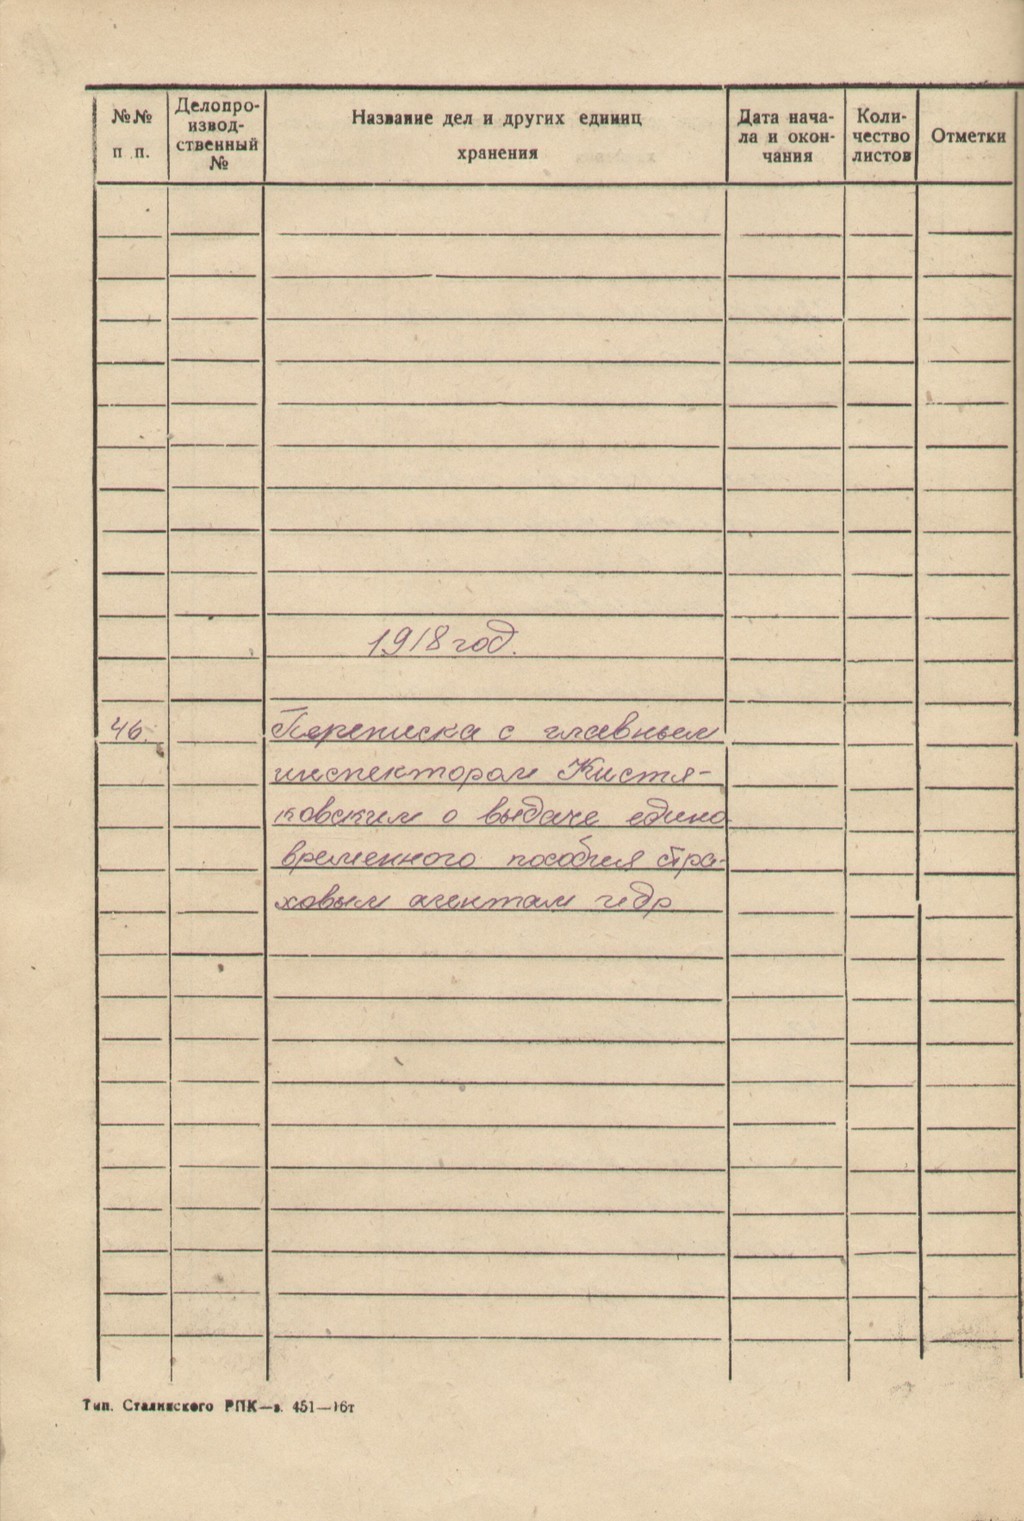 №№ п п.
Делопро-
извод-
ственный
№
Название дел и других единиц
хранения
Дата нача-
ла и окон-
чания
Коли-
чество
листов
Отметки
1918 год.
46. Переписка с главным
инспектором Кистя-
ковским о выдаче едино
временного пособия стра-
ховым агентам и др
Тип. Сталинского РПК—з. 451—16т